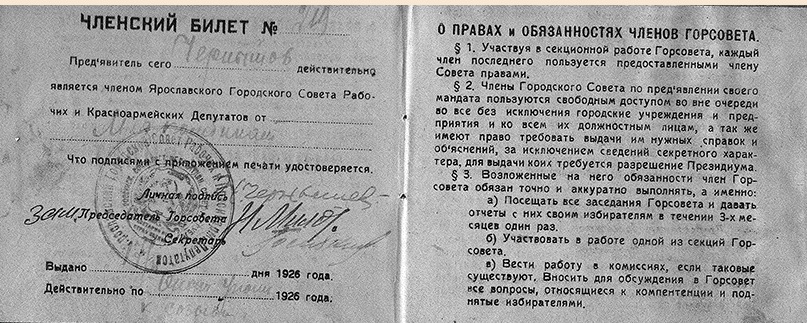 ЧЛЕНСКИЙ БИЛЕТ №
Пред'явитель сего действительно
является членом Ярославского Городского Совета Рабо-
чих и Красноармейских Депутатов от
Что подписями с приложением печати удостоверяется.
Личная подпись
Зам. Председатель Горсовета
Секретарь
Выдано дня 1926 года.
Действительно по 1926 года.
О ПРАВАХ и ОБЯЗАННОСТЯХ ЧЛЕНОВ ГОРСОВЕТА.
§ 1. Участвуя в секционной работе Горсовета, каждый
член последнего пользуется предоставленными члену
Совета правами.
§ 2. Члены Городского Совета по пред'явлении своего
мандата пользуются свободным доступом во вне очереди
во все без исключения городские учреждения и пред-
приятия и ко всем их должностным лицам, а так же
имеют право требовать выдачи им нужных справок и
об'яснений, за исключением сведений секретного харак-
тера, для выдачи коих требуется разрешение Президиума.
§ 3. Возложенные на него обязанности член Гор-
совета обязан точно и аккуратно выполнять, а именно:
а) Посещать все заседания Горсовета и давать
отчеты с них своим избирателям в течении 3-х ме-
сяцев один раз.
б) Участвовать в работе одной из секций Гор-
совета.
в) Вести работу в комиссиях, если таковые
существуют. Вносить для обсуждения в Горсовет
все вопросы, относящиеся к компентенции и под-
нятые избирателями.